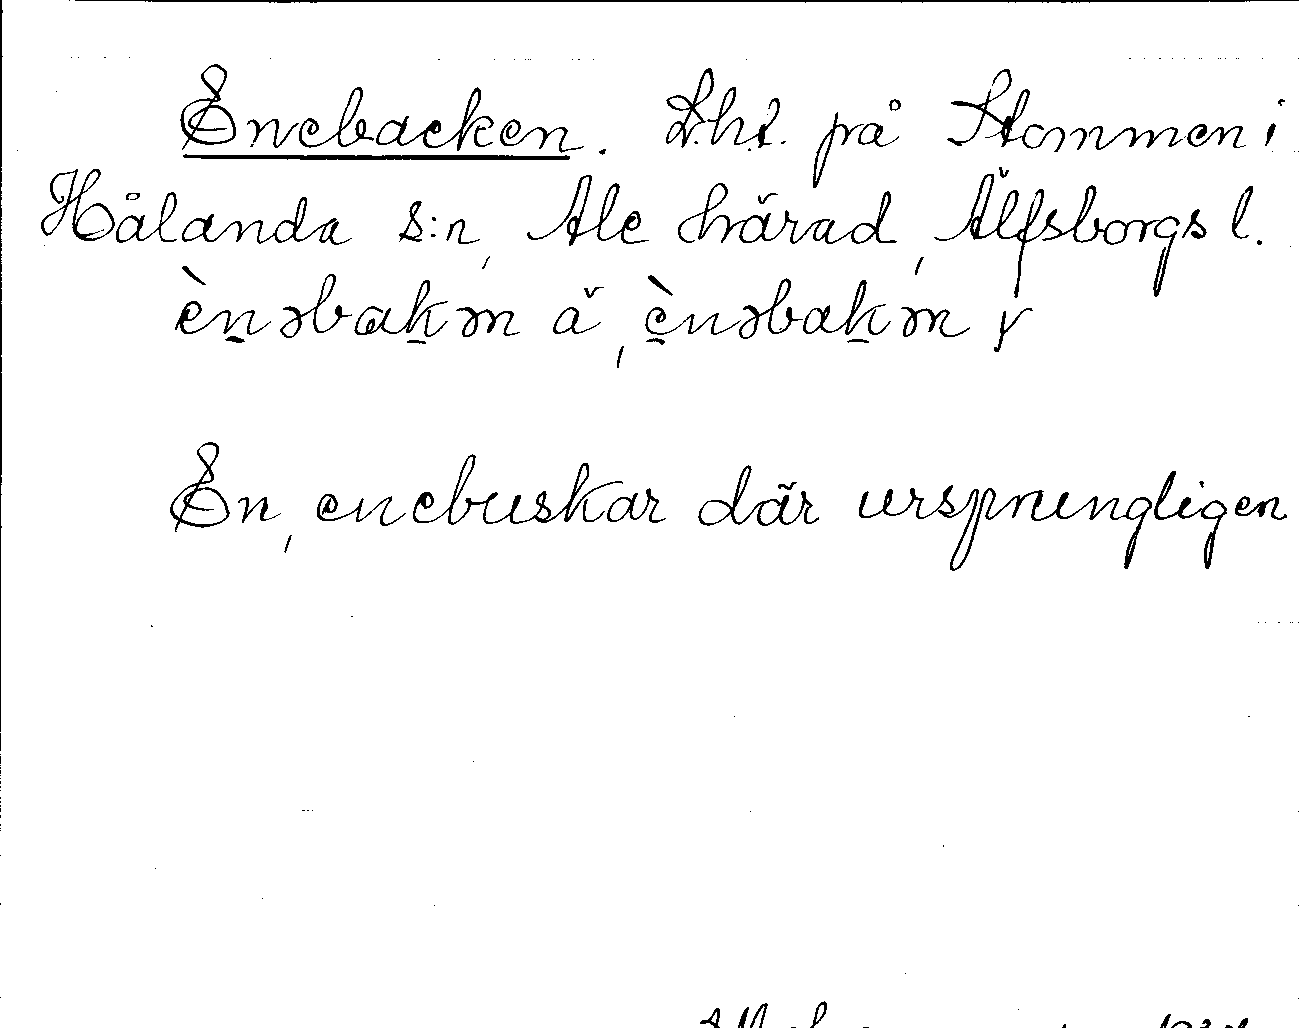 Enebacken. L.h.t. på Stommen i
Hålanda s:n, Ale härad, Älfsborgs l.
ènəbakən ä, ènəbakən
En, enebuskar där ursprungligen